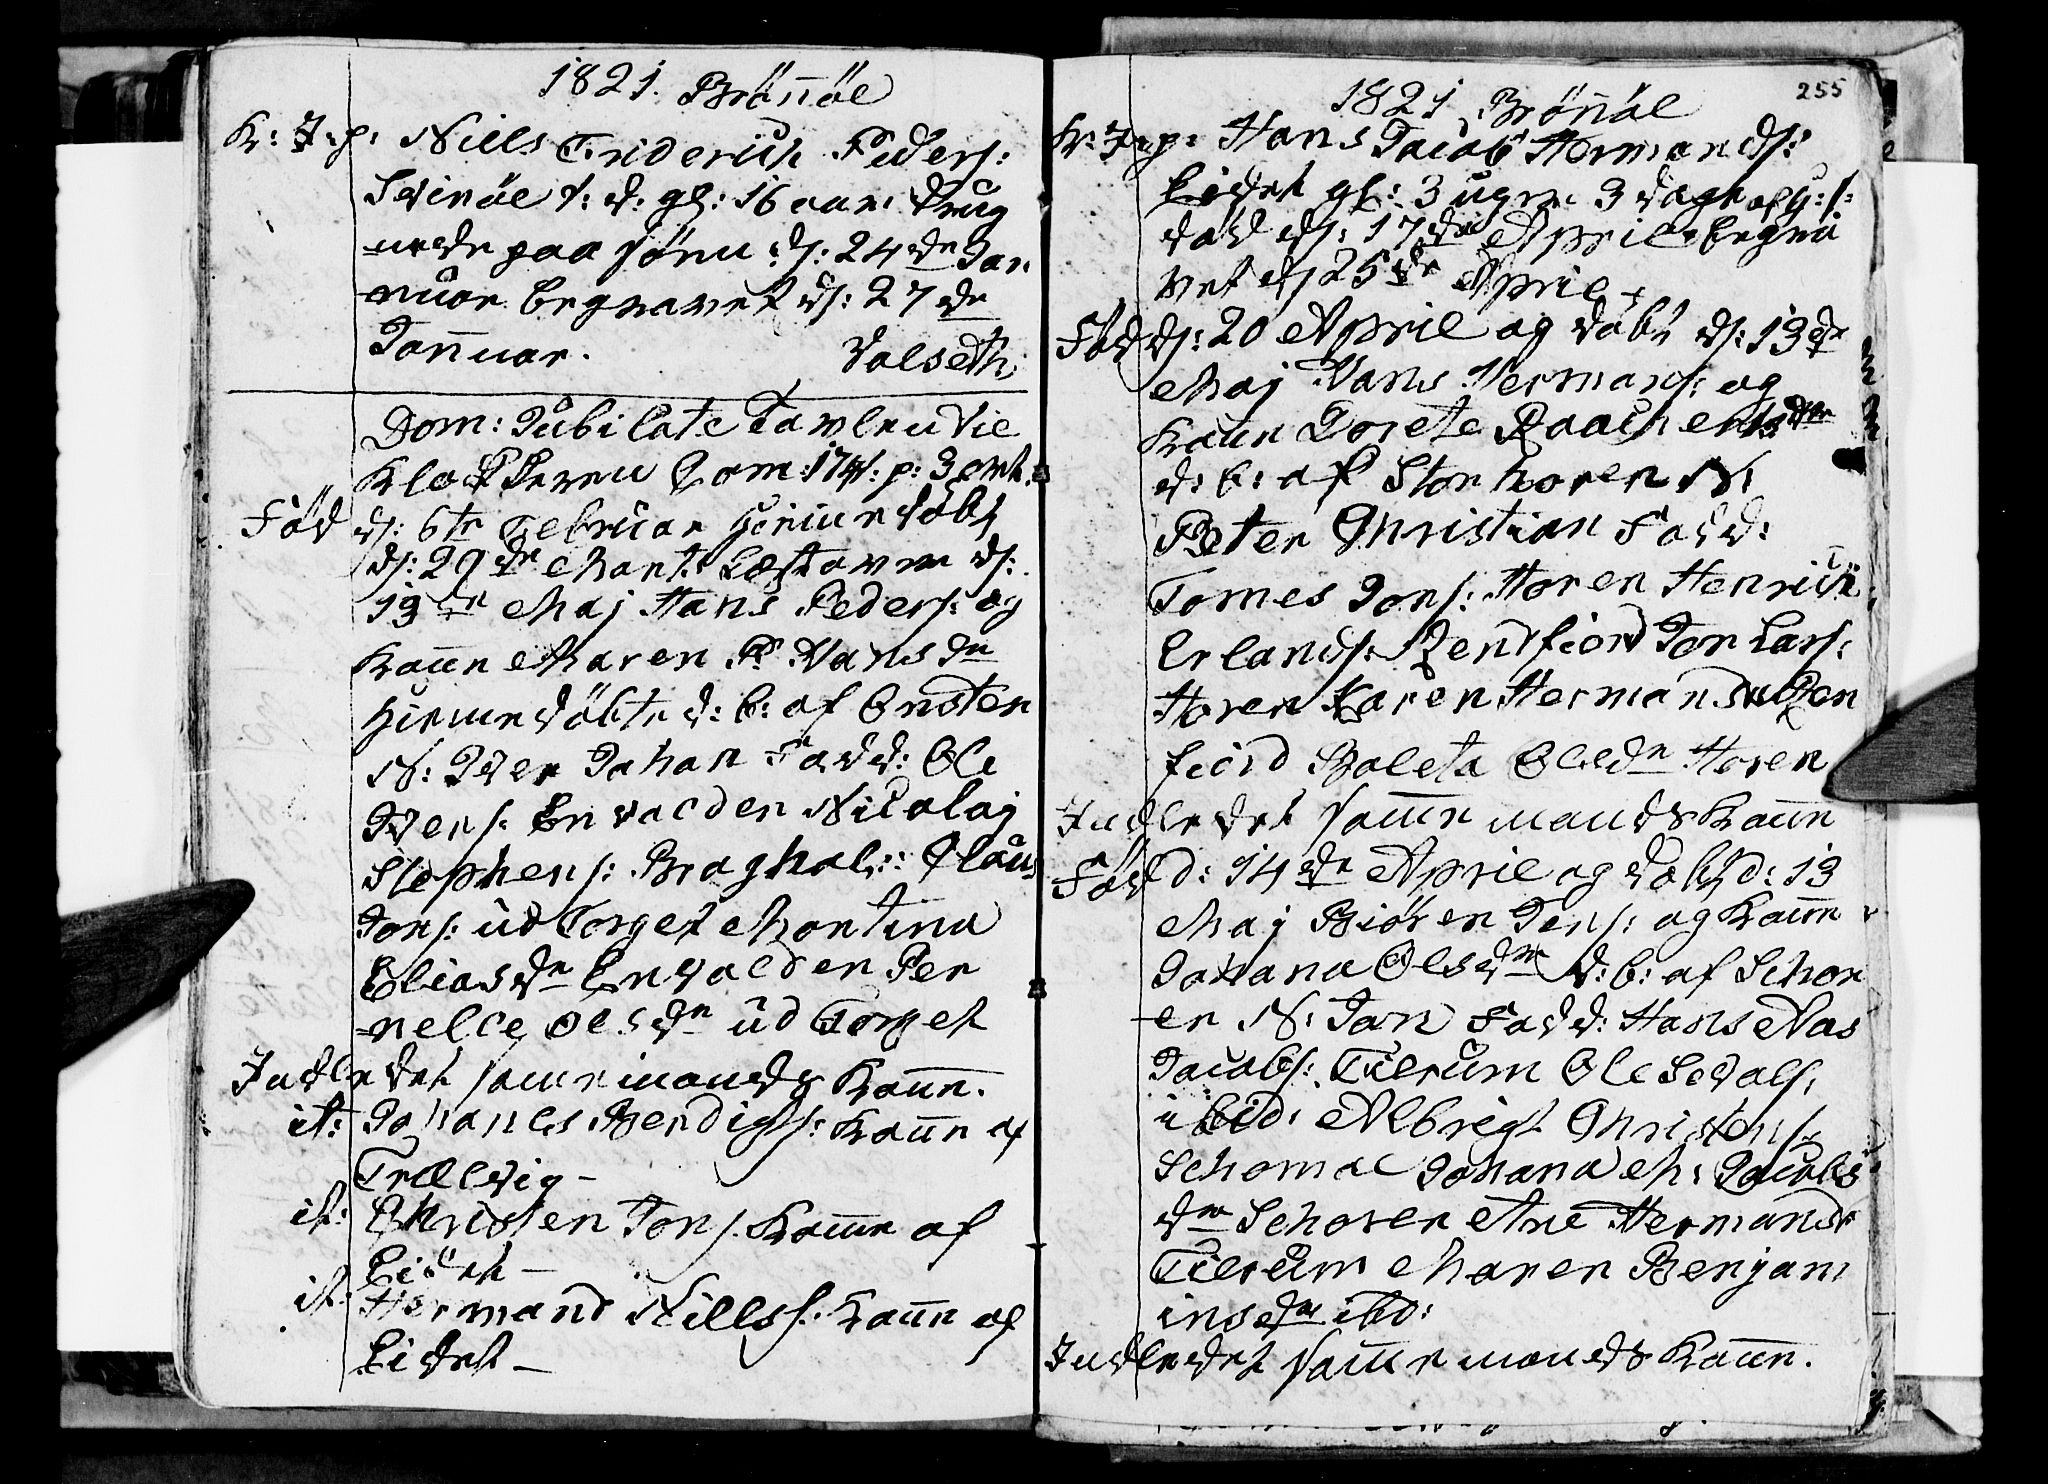 1821. Brönöe
K: J: p: Niels Friderich Peders:
Svinöe t: d: gl: 16 aar Drug
nede paa söen d: 24de Jan
nuar begravet d: 27de
Januar. Valseth
Dom: Jubilate Tavlen Vie
Klockeren Com: 174: p: 3 ort.
Föd d: 6te Februar hiemedöbt
d: 29de Mart:  d:
13de Maj Hans Peders: og
Kone Maren P Hansdn
hiemedöbte d: b: af Onsten
N: Iver Johan Fadd: Ole
Ivers: Envolden Nicolaj
Stephens: Braghol:: Claus
Jons: üd Torget Martina
Eliasdn Envolden Per
nelle Olsdn üd Torget
Indledet samme mands Kone.
it: Johanes Bendigs: Kone af
Trælvig –
it: Christen Jons. Kone af
Eidet –
it: Hermand Nillss. Kone af
Eidet –
255
1821 Brönöe
K: J: p: Hans Jacob Hermands:
Eidet gl: 3 uger 3 dage
död d: 17de April begra
vet d 25de April
Föd d: 20 April og döbt d: 13de
Maj Hans Hermans: og
Kone Dorete
d: b: af Stor horen N:
Peter Christian Fadd:
Tomes Jons: Horen Henrich
Erlands: Rendfiord Jon Lars:
Horen Karen Hermandsdn Ren
fiord Boleta Olesdn Horen
Indledet samme mands Kone
Föd d: 14de April og döbt d: 13
Maj Biören Jens: og Kone
Johana Olsdn d: b: af Schor
en N: Jan Fadd: Hans Aas
Jacobs: Tilrüm Ole
ibid: Albrigt Christens:
Schomoe Johana M: Jacobs
dn Schoren Ane Hermands
Tilrüm Maren Benjam
insdn ibd:
Indledet samme mands Kone.